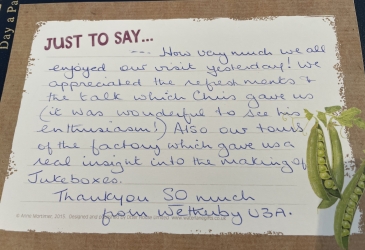 Day a Pa
JUST TO SAY...
--- How very much we all
enjoyed our visit yesterday! We
appreciated the refreshments +
the talk which Chris gave us
(it was wonderful to see his
enthusiasm!) Also our tours
of the factory which gave us a
real insight into the making of
Jukeboxes.
Thankyou SO much
from Wetherby U3A.